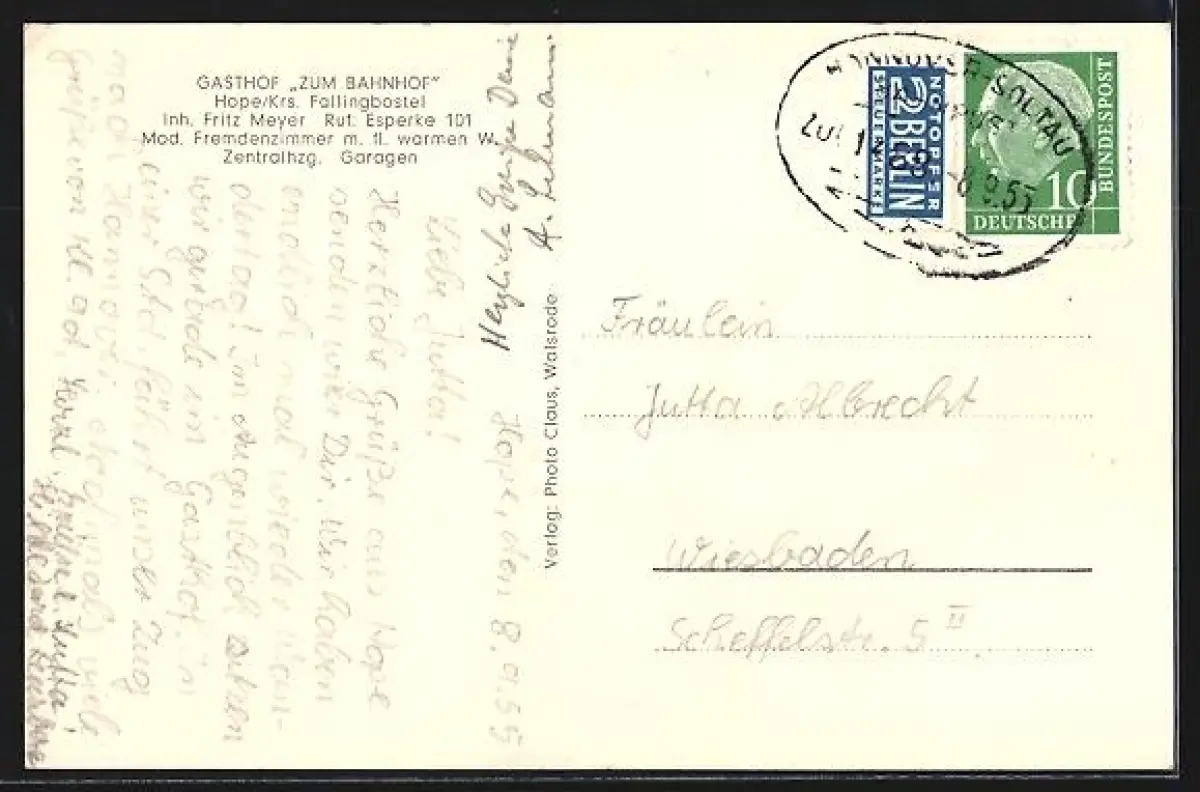 GASTHOF „ZUM BAHNHOF"
Hope/Krs. Fallingbostel
Inh. Fritz Meyer Ruf. Esperke 101
Mod. Fremdenzimmer m. fl. warmen W.
Zentralhzg. Garagen
Hope, den 8.9.55
Liebe Jutta!
Herzliche Grüße aus Hope
senden wir Dir. Wir haben
endlich mal wieder
Im Augenblick sitzen
wir gerade im Gasthof. In
einer Std. fährt unser Zug
nach
Grüße von
Herzl. Grüße Jutta,
Herzliche Grüße Deine
A.
Verlag: Photo Claus, Walsrode
NOTOPFER
2 BERLIN
STEUERMARKE
HANNOVER-SOLTAU
BAHNPOST
ZUG 1468
-8.9.55
10
DEUTSCHE
BUNDESPOST
Fräulein
Jutta Albrecht
Wiesbaden
Scheffelstr. 5 II